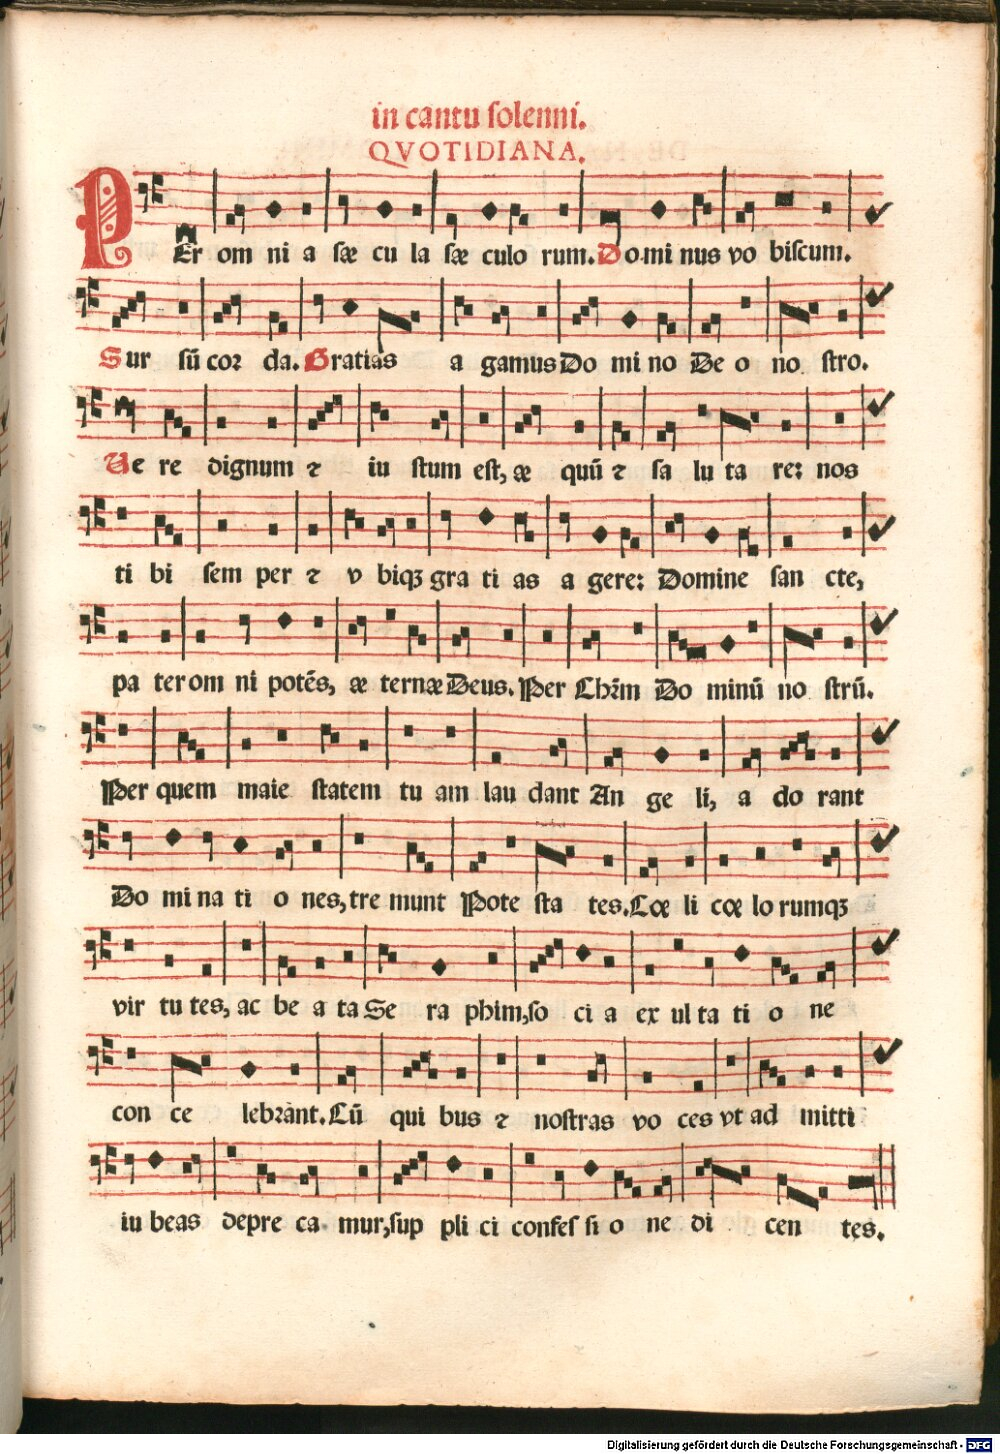 in cantu ſolenni.
QVOTIDIANA.
PEr om ni a ſæ cu la ſæ culo rum. Do mi nus vo biſcum.
Sur ſũ cor da. Gratias a gamus Do mi no De o no ſtro.
Ue re dignum ⁊ iu ſtum eſt, æ quũ ⁊ ſa lu ta re: nos
ti bi ſem per ⁊ v biqꝫ gra ti as a gere: Domine ſan cte,
pa ter om ni potẽs, æ ternæ Deus. Per Chr̃m Do minũ no ſtrũ.
Per quem maie ſtatem tu am lau dant An ge li, a do rant
Do mi na ti o nes, tre munt Pote ſta tes. Cœ li cœ lo rumqꝫ
vir tu tes, ac be a ta Se ra phim, ſo ci a ex ul ta ti o ne
con ce lebrãnt. Cũ qui bus ⁊ noſtras vo ces vt ad mitti
iu beas depre ca mur, ſup pli ci confeſ ſi o ne di cen tes.
Digitalisierung gefördert durch die Deutsche Forschungsgemeinschaft - DFG